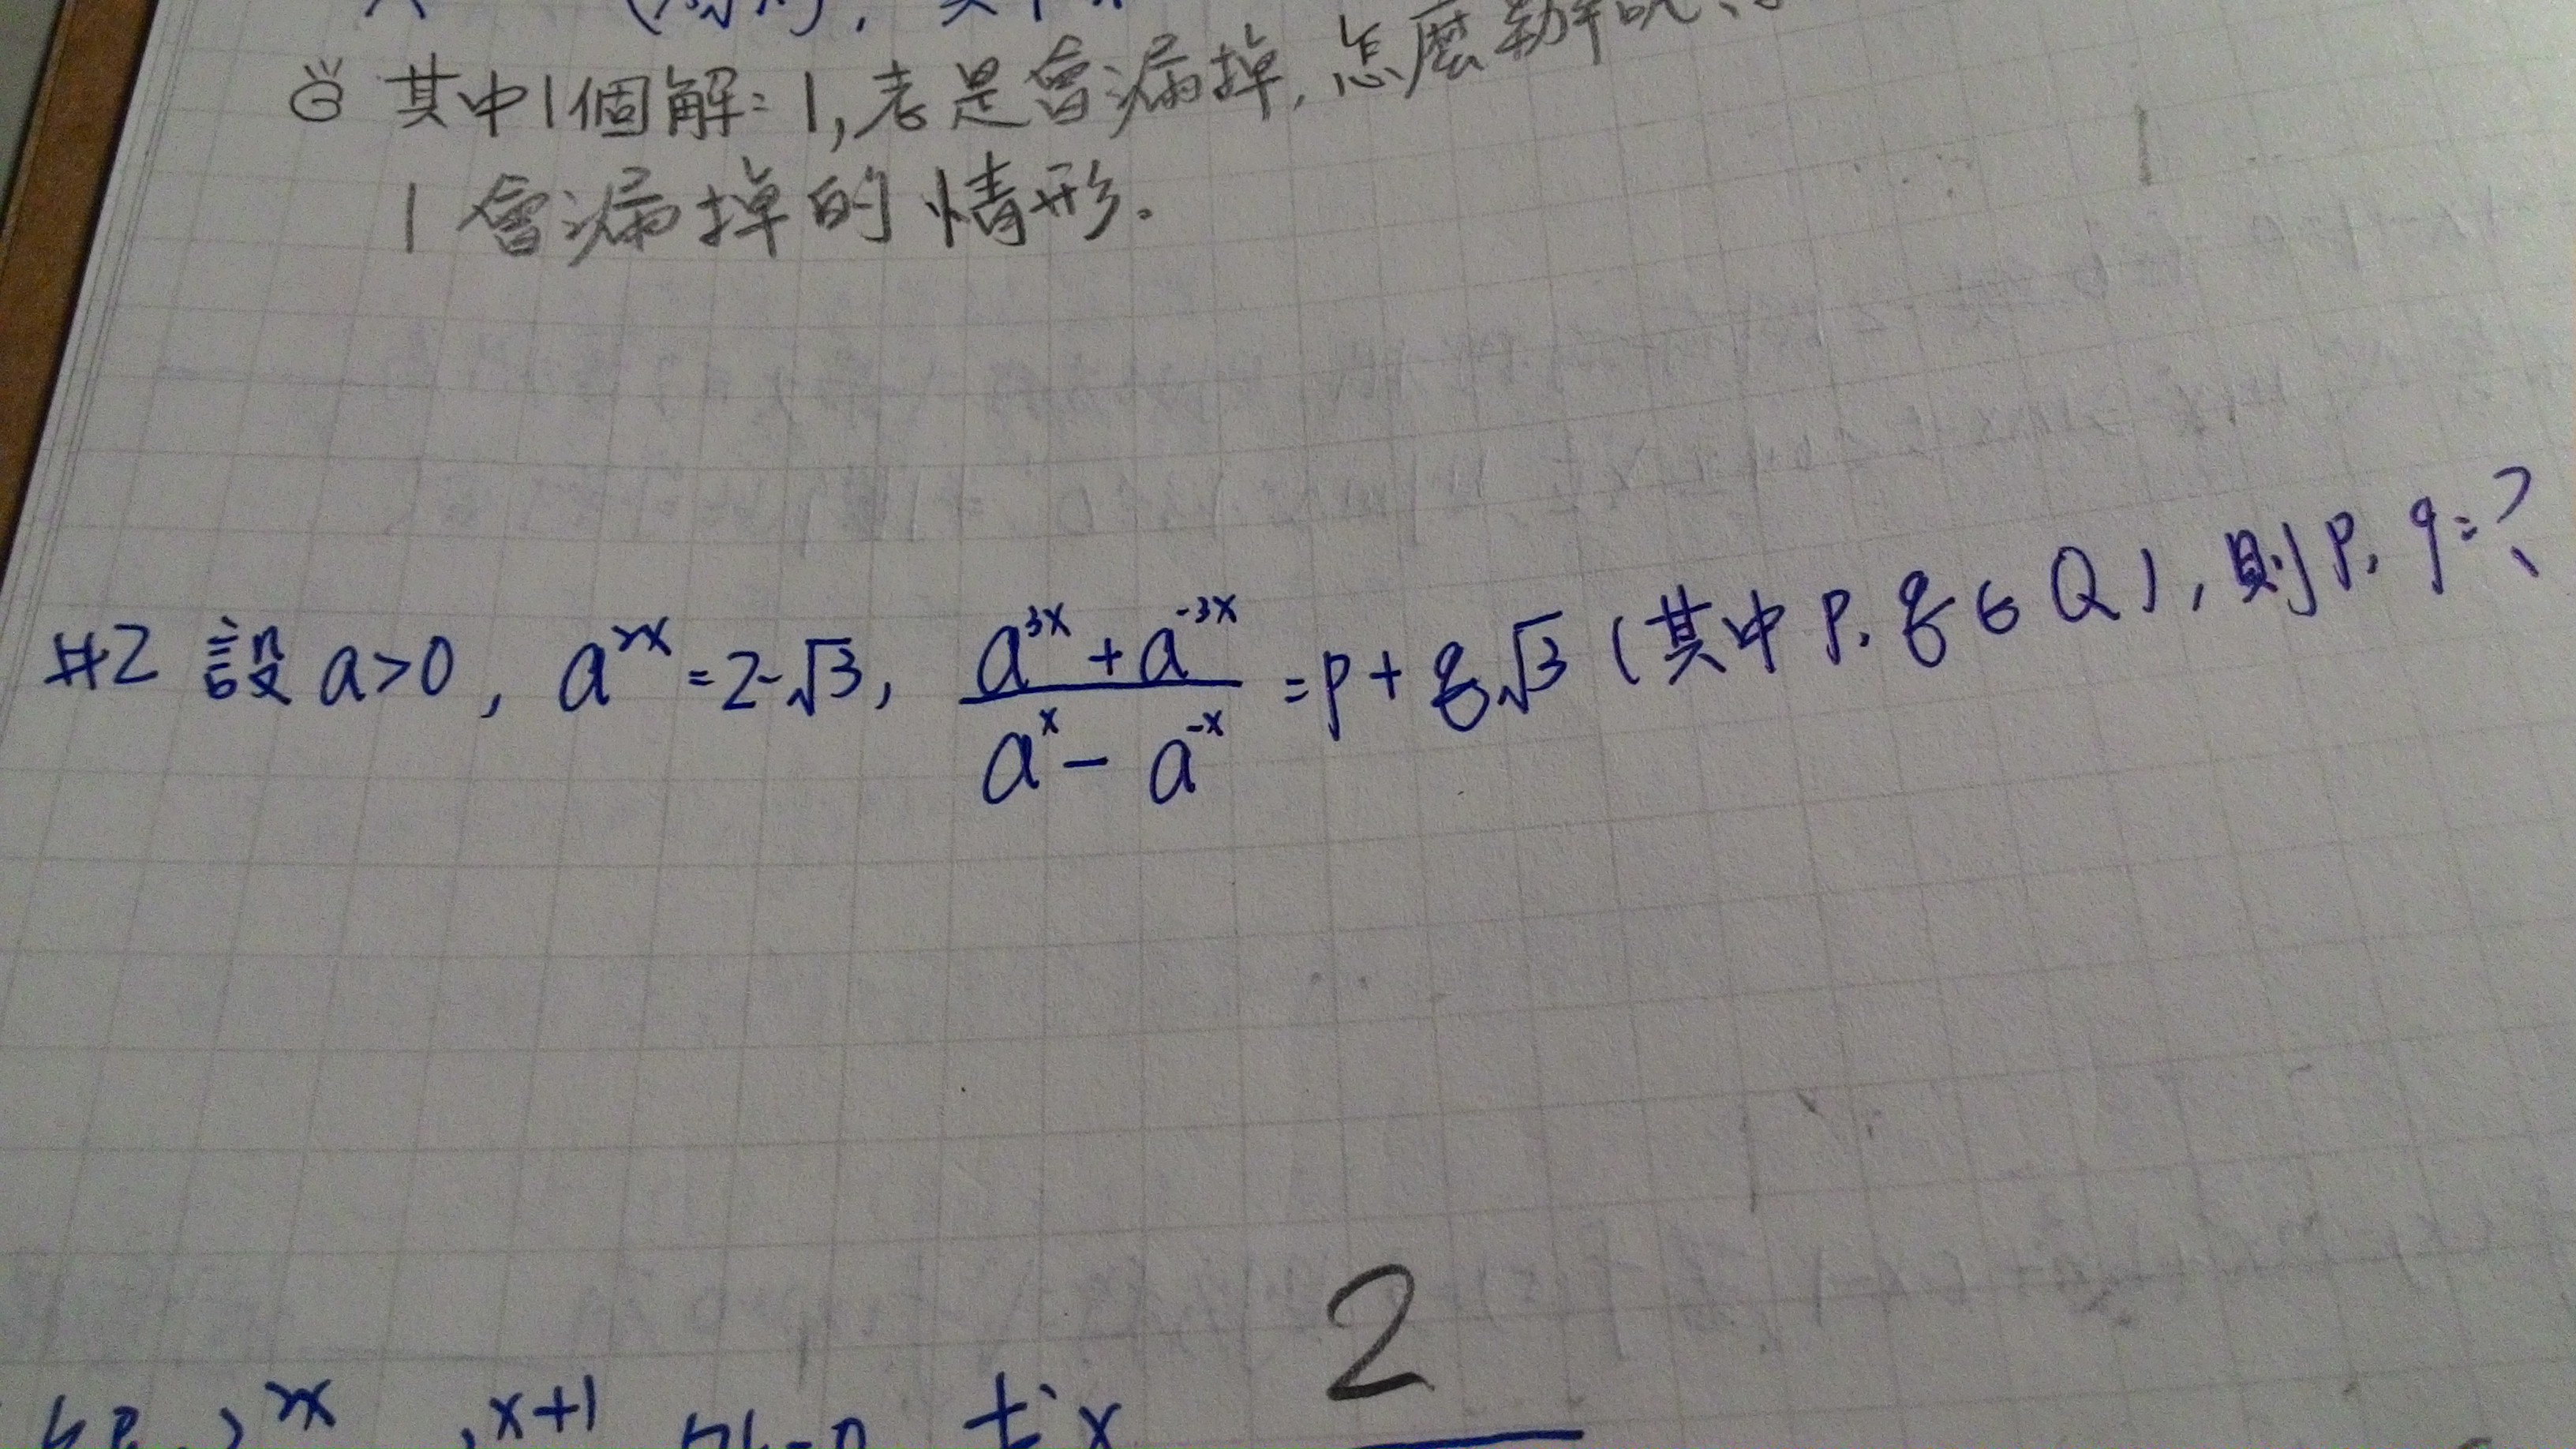 其中1個解=1,老是會漏掉,怎麼辦呢
1會漏掉的情形.
#2 設a>0, a^{2x}=2-√3, \frac{a^{3x}+a^{-3x}}{a^{x}-a^{-x}}=p+q√3 (其中p,q∈Q), 則p,q=?
2